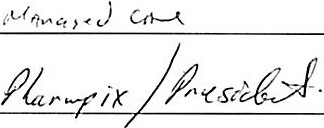 Managed Care
Pharmpix / President.